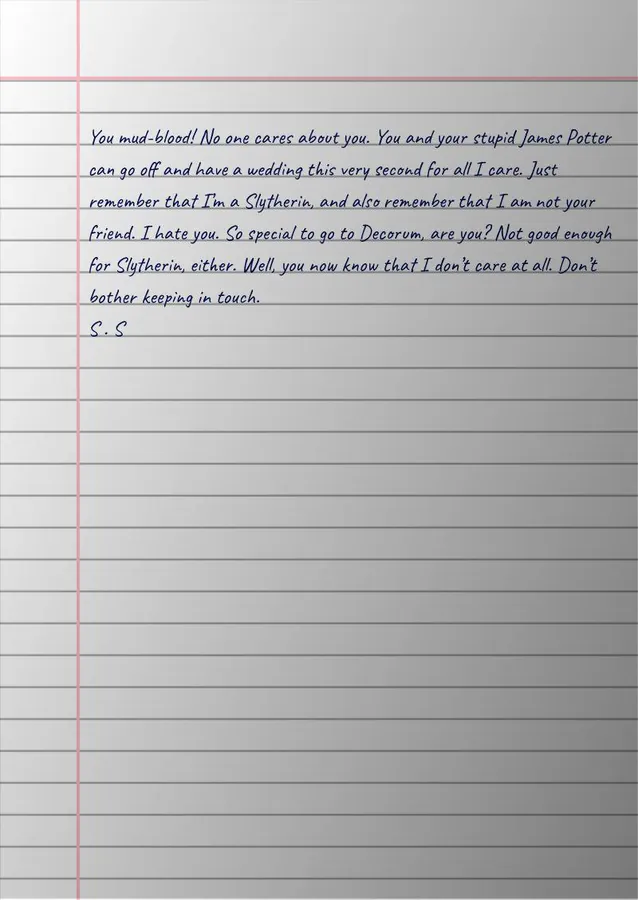 You mud-blood! No one cares about you. You and your stupid James Potter
can go off and have a wedding this very second for all I care. Just
remember that I'm a Slytherin, and also remember that I am not your
friend. I hate you. So special to go to Decorum, are you? Not good enough
for Slytherin, either. Well, you now know that I don't care at all. Don't
bother keeping in touch.
S. S